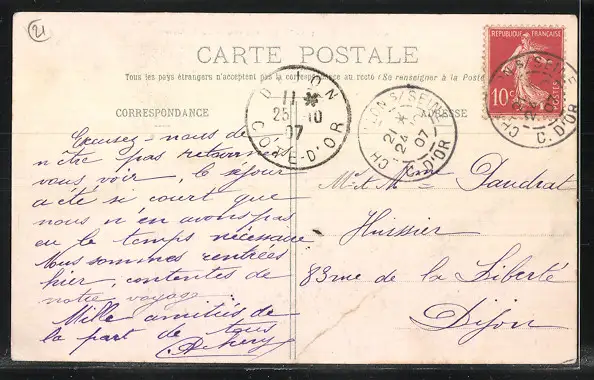 21
CARTE POSTALE
Tous les pays étrangers n'acceptent pas la correspondance au recto (Se renseigner à la Poste)
CORRESPONDANCE
ADRESSE
DIJON
11 *
25 -10
07
COTE-D'OR
CHATILLON S/SEINE
21 *
24 10
07
C. D'OR
REPUBLIQUE FRANÇAISE
10c
POSTES
S/SEINE
C. D'OR
Excusez-nous de
n'être pas retournés
vous voir, le séjour
a été si court que
nous n'en avons pas
eu le temps nécessaire
Nous sommes rentrées
hier, contentes de
notre voyage
Mille amitiés de
la part de tous
Mr et Mme
Huissier
83 rue de la Liberté
Dijon